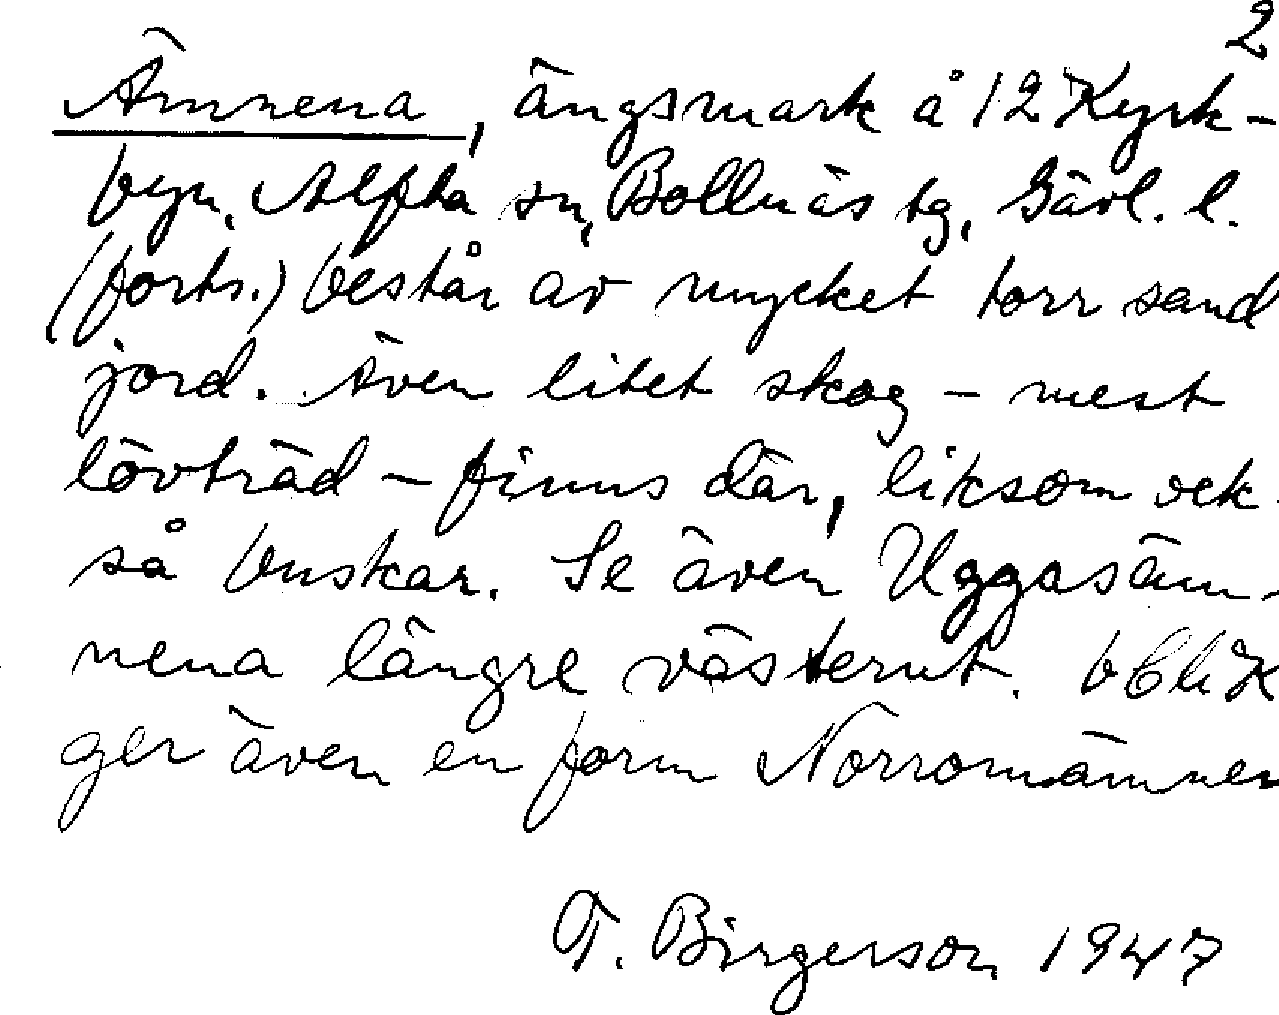 2
Ämnena, ängsmark å 12 Kyrk-
byn, Alfta sn, Bollnäs tg, Gävl. l.
(forts.) består av mycket torr sand
jord. Även litet skog – mest
lövträd – finns där, liksom ock
så buskar. Se även Uggasäm-
nena längre västerut.
ger även en form Norromämnen
T. Birgerson 1947